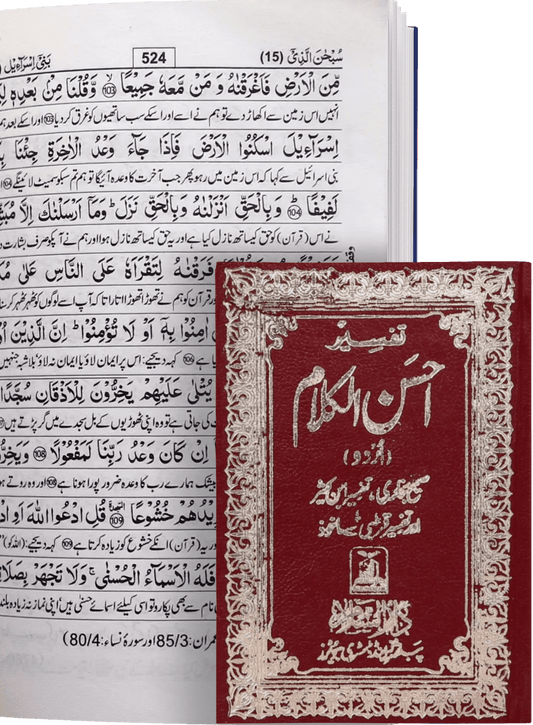 سُبْحٰنَ الَّذِیْۤ (15)
524
بَنِیْۤ اِسْرَآءِیْل
مِّنَ الْاَرْضِ فَاَغْرَقْنٰهُ وَ مَنْ مَّعَهٗ جَمِیْعًا ۙ 103 وَّقُلْنَا مِنْۢ بَعْدِهٖ
انہیں اس زمین سے اکھاڑ دے تو ہم نے اسے اور اسکے سب ساتھیوں کو غرق کر دیا 103 اور اسکے بعد ہم
اِسْرَآءِیْلَ اسْكُنُوا الْاَرْضَ فَاِذَا جَآءَ وَعْدُ الْاٰخِرَةِ جِئْنَا
بنی اسرائیل سے کہا کہ اس زمین میں رہو پھر جب آخرت کا وعدہ آئیگا تو ہم تم سبکو سمیٹ لائینگے 104
لَفِیْفًا ؕ 104 وَ بِالْحَقِّ اَنْزَلْنٰهُ وَ بِالْحَقِّ نَزَلَ ؕ وَمَاۤ اَرْسَلْنٰكَ اِلَّا
نے اس (قرآن) کو حق کیساتھ نازل کیا ہے اور یہ حق کیساتھ نازل ہوا اور ہم نے آپکو صرف بشارت
فَرَقْنٰهُ لِتَقْرَاَهٗ عَلَى النَّاسِ عَلٰى
قرآن کو ہم نے تھوڑا تھوڑا اتارا تاکہ آپ اسے لوگوں کو ٹھہر ٹھہر کر
اٰمِنُوْا بِهٖۤ اَوْ لَا تُؤْمِنُوْا ؕ اِنَّ الَّذِیْنَ
کہہ دیجیے: اس پر ایمان لاؤ یا ایمان نہ لاؤ بلاشبہ جنہیں
یُتْلٰى عَلَیْهِمْ یَخِرُّوْنَ لِلْاَذْقَانِ سُجَّدًا
کی جاتی ہے تو وہ اپنی ٹھوڑیوں کے بل سجدے میں گر پڑتے ہیں
اِنْ كَانَ وَعْدُ رَبِّنَا لَمَفْعُوْلًا 108
بیشک ہمارے رب کا وعدہ ضرور پورا ہونا ہے 108 اور وہ روتے
یَزِیْدُهُمْ خُشُوْعًا 109 قُلِ ادْعُوا اللّٰهَ اَوِ
(قرآن) انکے خشوع کو زیادہ کرتا ہے 109 کہہ دیجیے:
فَلَهُ الْاَسْمَآءُ الْحُسْنٰى ۚ وَلَا تَجْهَرْ
نام سے بھی پکارو تو اسی کیلئے اسمائے حسنٰی ہیں اور اپنی نماز نہ زیادہ بلند
عمران: 85/3 اور سورۂ نساء: 80/4)
تفسیر
احسن الکلام
(اُردو)
صحیح بخاری، تفسیر ابن کثیر
اور تفسیر قرطبی سے ماخوذ
دارالسلام
پبلشرز اینڈ ڈسٹری بیوٹرز